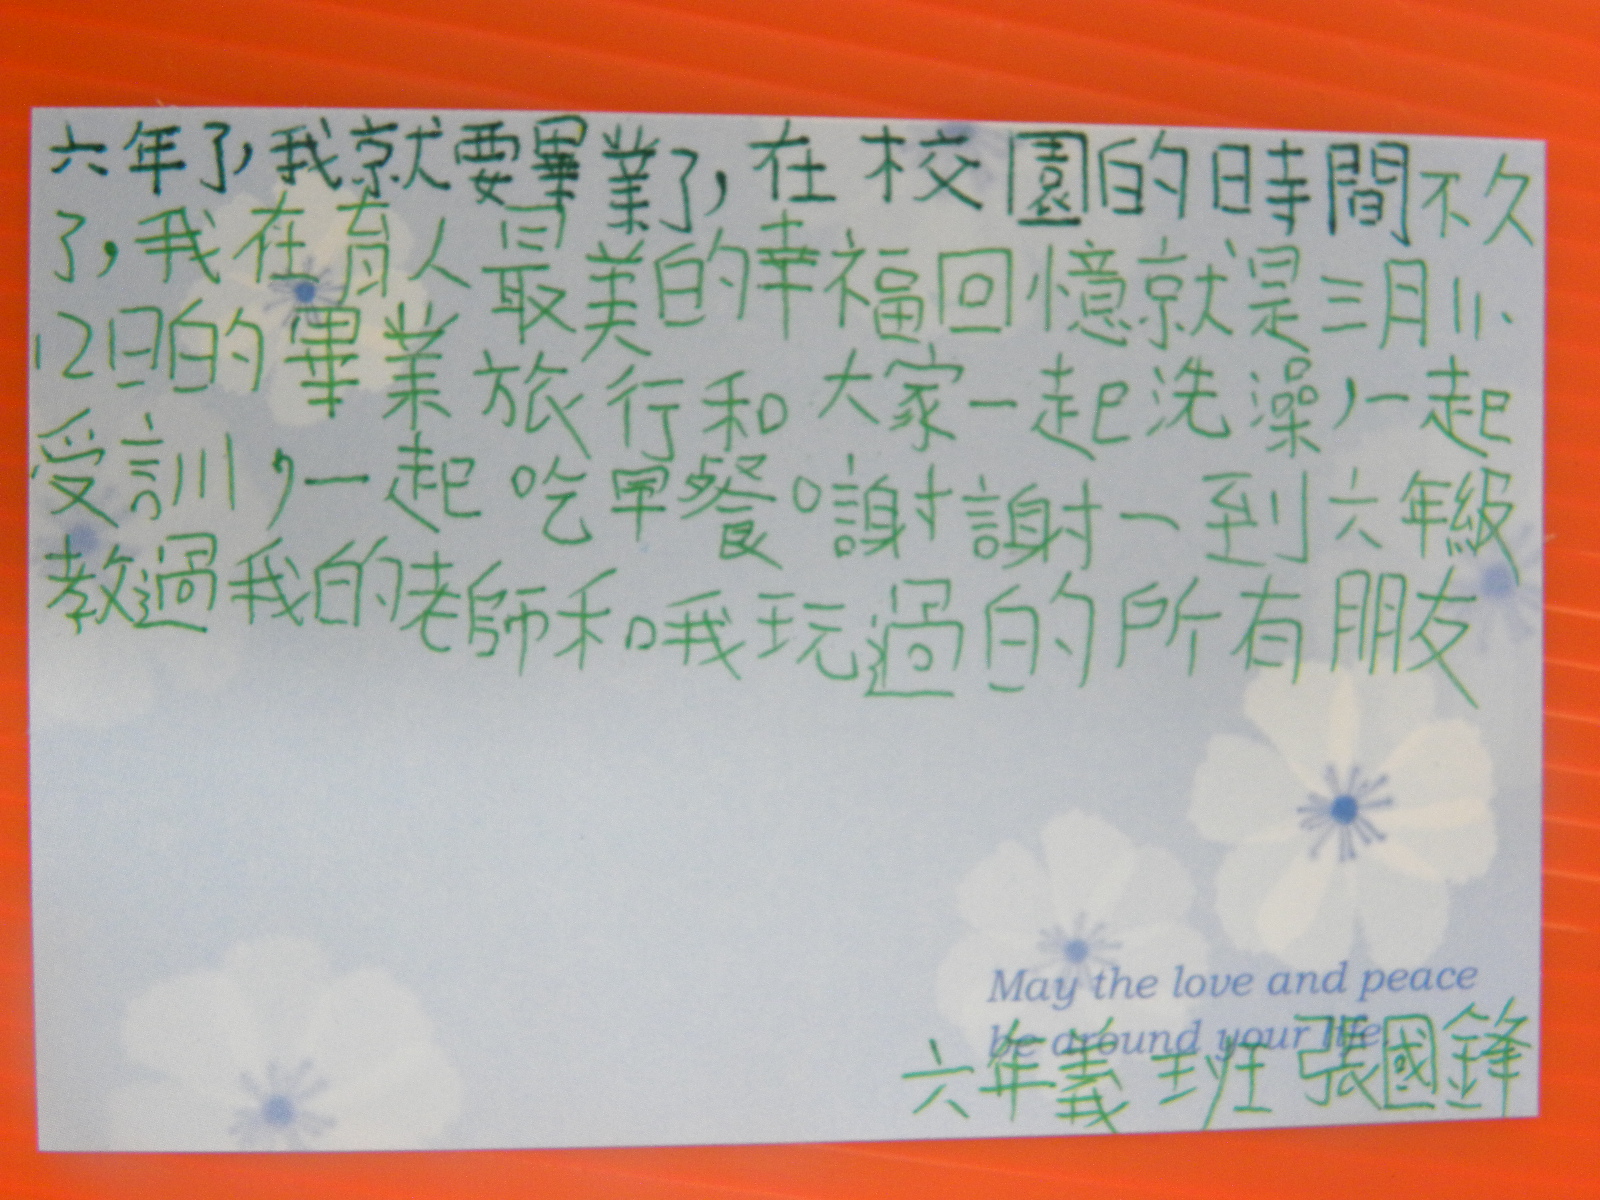 六年了,我就要畢業了,在校園的時間不久
了,我在育人最美的幸福回憶就是三月11、
12日的畢業旅行和大家一起洗澡,一起
受訓,一起吃早餐。謝謝一到六年級
教過我的老師和我玩過的所有朋友
May the love and peace
be around your life.
六年義班張國鋒